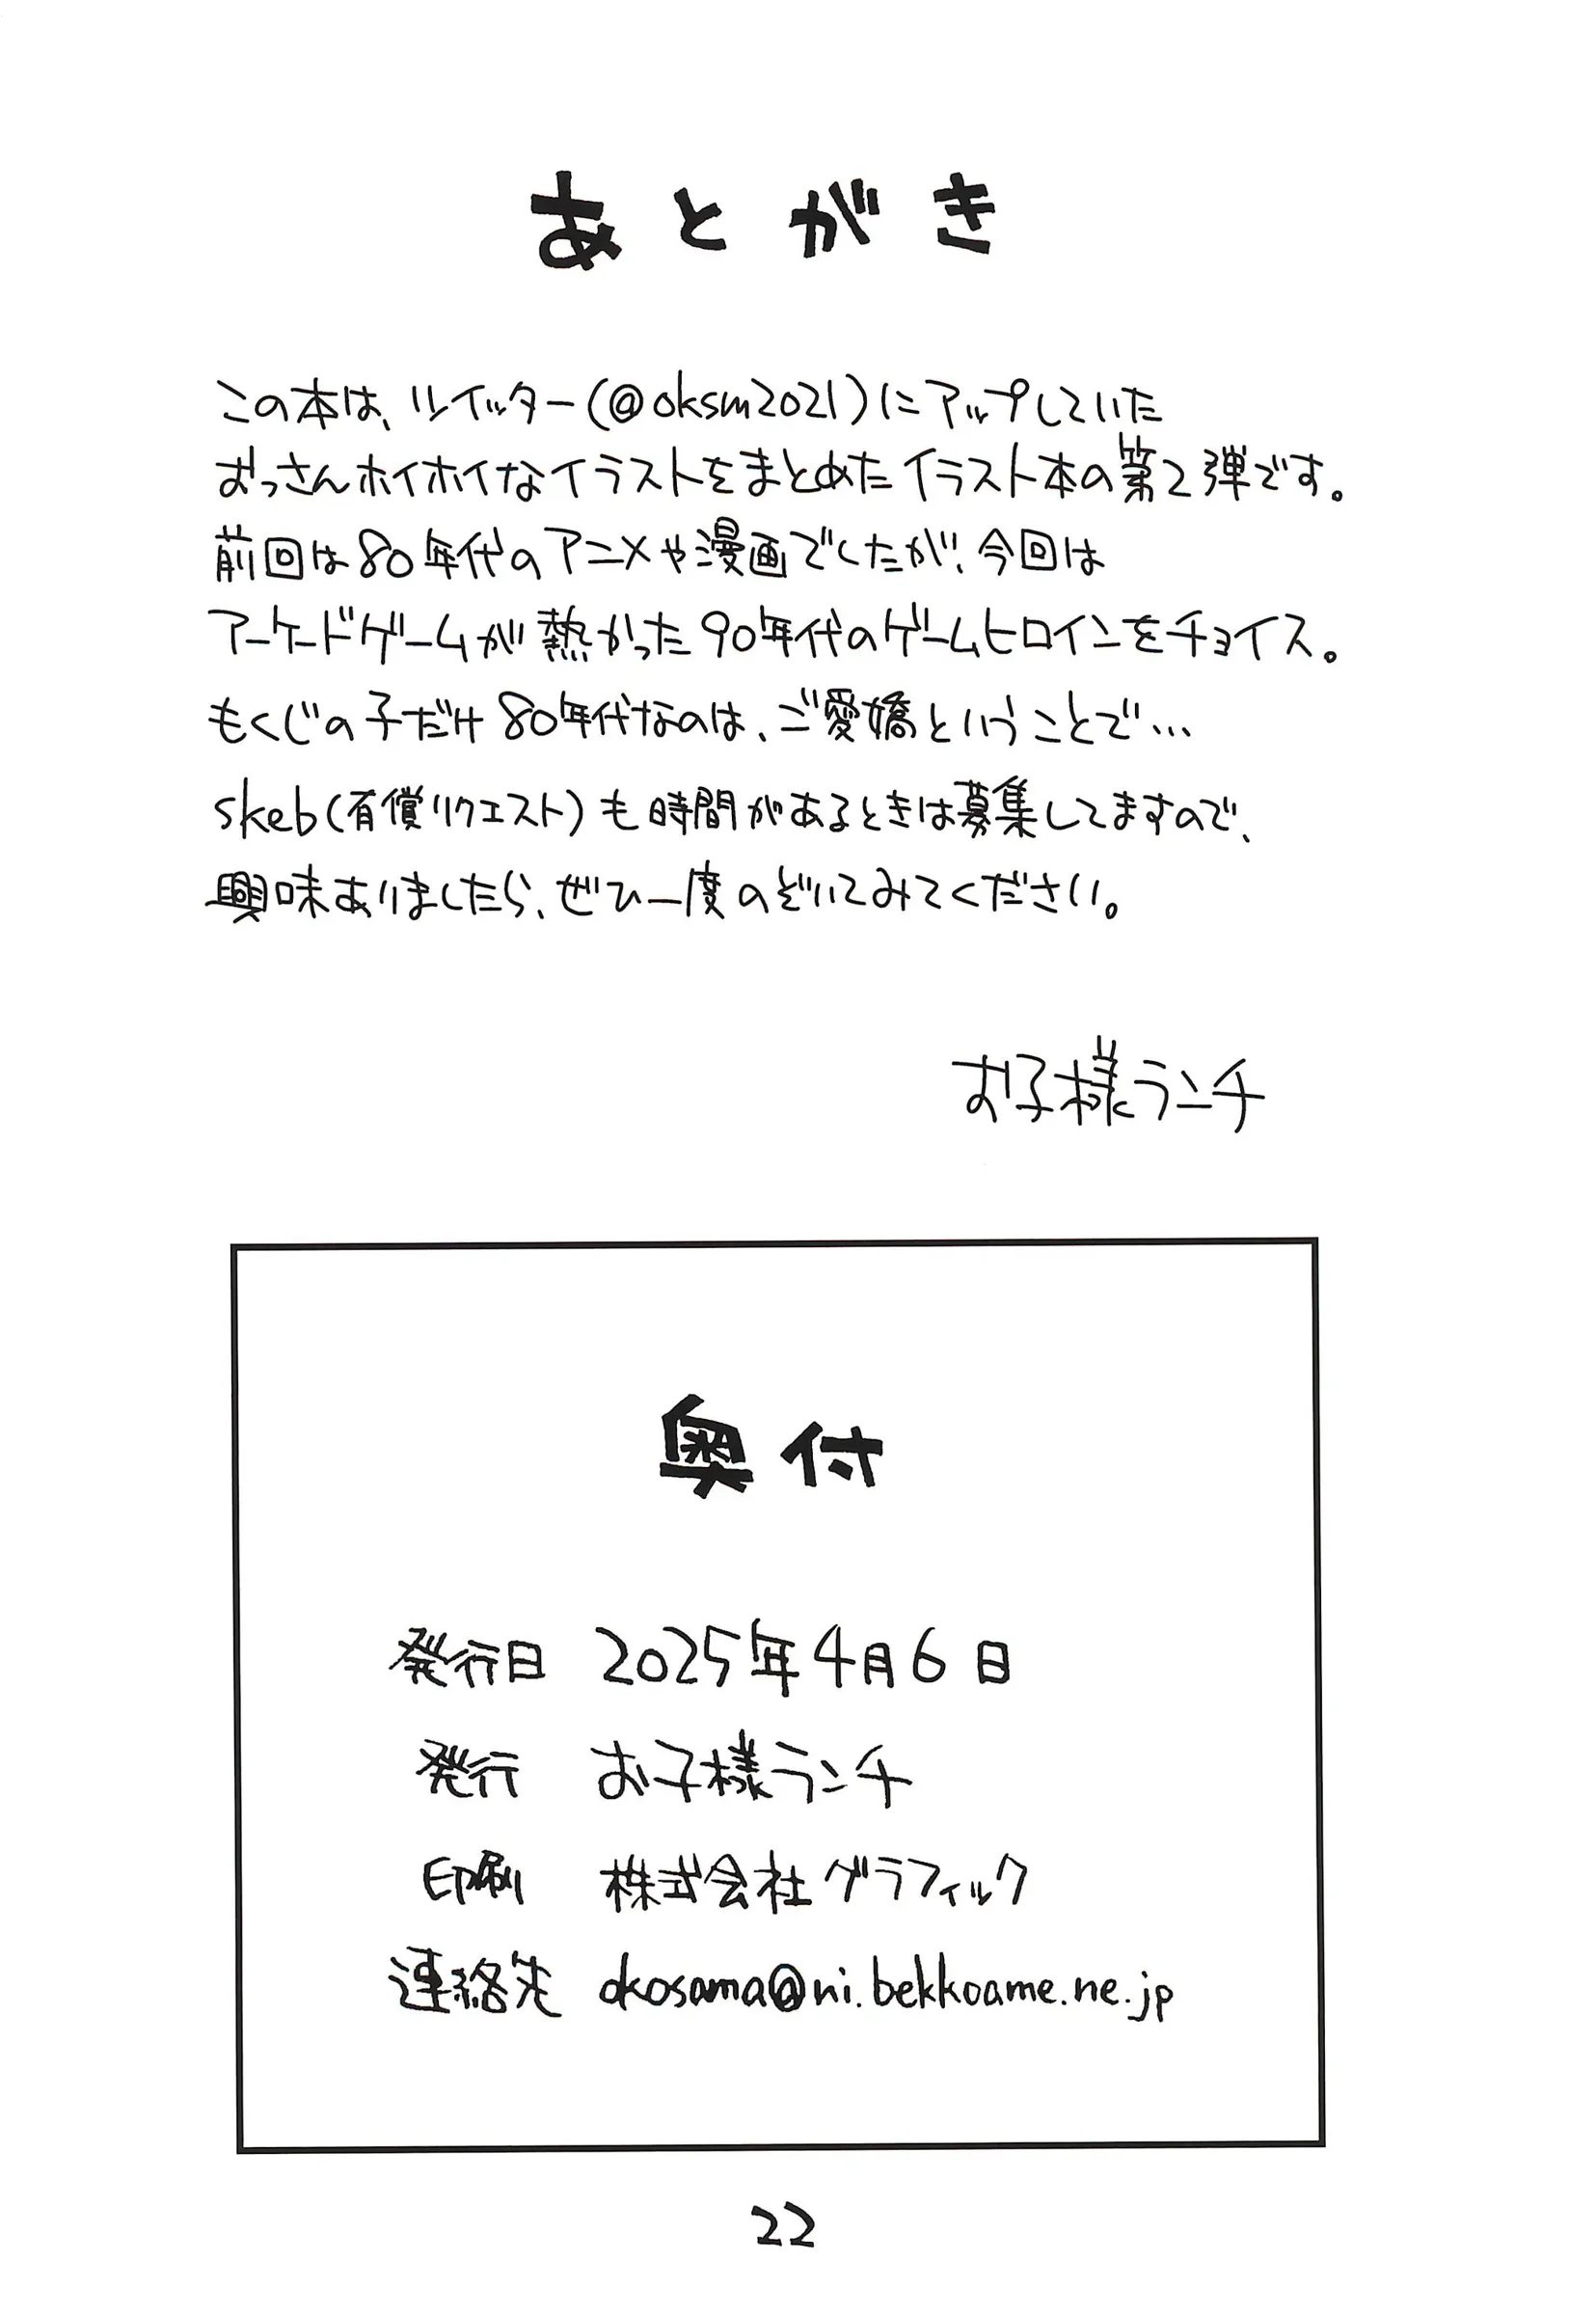 あとがき
この本は、ツイッター(@oksm2021)にアップしていた
おっさんホイホイなイラストをまとめたイラスト本の第2弾です。
前回は80年代のアニメや漫画でしたが、今回は
アーケードゲームが熱かった90年代のゲームヒロインをチョイス。
もくじの子だけ80年代なのは、ご愛嬌ということで…
skeb(有償リクエスト)も時間があるときは募集してますので、
興味ありましたら、ぜひ一度のぞいてみてください。
お子様ランチ
奥付
発行日 2025年4月6日
発行 お子様ランチ
印刷 株式会社グラフィック
連絡先 okosama@ni.bekkoame.ne.jp
22